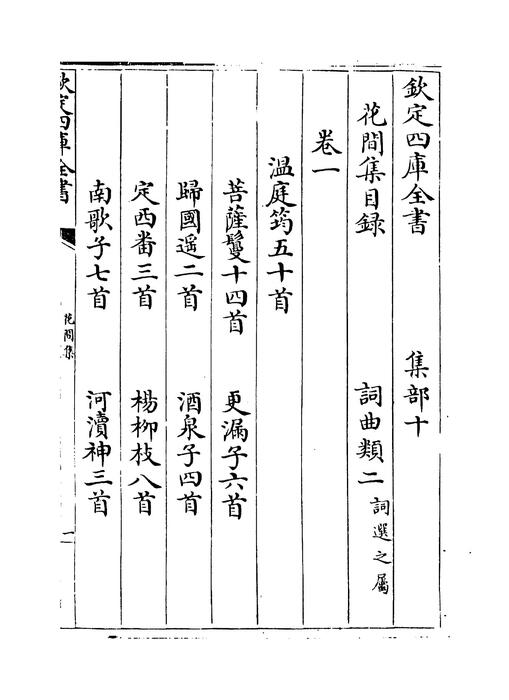 欽定四庫全書　集部十
花間集目録　詞曲類二　詞選之屬
卷一
溫庭筠五十首
菩薩鬘十四首　更漏子六首
歸國遥二首　酒泉子四首
定西番三首　楊柳枝八首
南歌子七首　河瀆神三首
欽定四庫全書　花間集　一